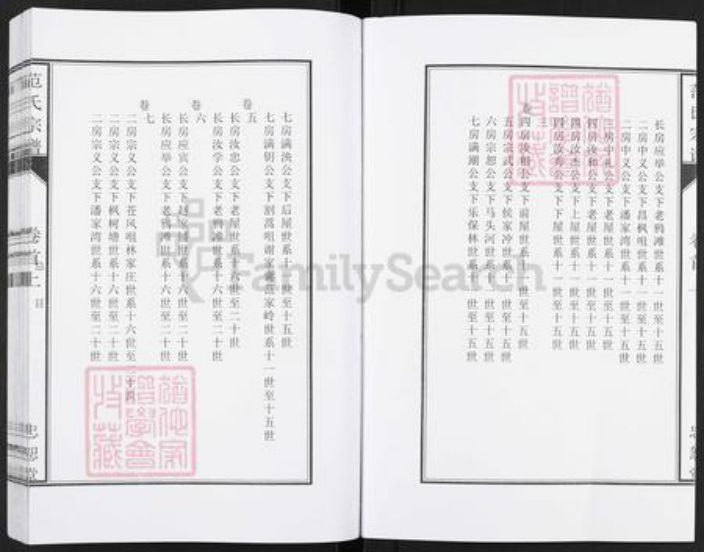 长房应举公支下老鸦滩世系十一世至十五世
二房中义公支下昌枫咀世系十一世至十五世
二房中义公支下潘家湾世系十一世至十五世
房中礼公支下老屋世系十一世至十五世
四房汝和公支下老屋世系十一世至十五世
四房汝杰公支下上屋世系十一世至十五世
四房汝寿公支下下屋世系十一世至十五世
卷
四房汝明公支下前屋世系十一世至十五世
五房宗武公支下侯家冲世系十一世至十五世
六房宗恕公支下马头河世系十一世至十五世
七房满潮公支下乐保林世系十一世至十五世
七房满泱公支下后屋世系十一世至十五世
七房满钥公支下割蒿咀谢家湖范家岭世系十一世至十五世
卷五
长房汝忠公支下老屋世系十六世至二十世
长房汝学公支下老鸦滩世系十六世至二十世
卷六
长房应宾公支下赵家 世系十六世至二十世
长房应举公支下老鸦滩世系十六世至二十世
卷七
二房宗义公支下苍风咀林家庄世系十六世至二十四
二房宗义公支下枫树塘世系十六世至二十世
二房宗义公支下潘家湾世系十六世至二十世
范氏宗谱
卷首上
目
忠恕堂
FamilySearch